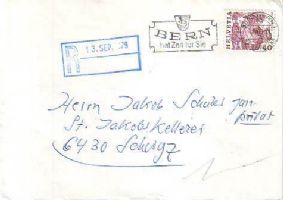 R 13. SEP. 79
BERN
hat Zeit für Sie
HELVETIA
80
Herrn Jakob Schuler jun.
privat
St. Jakobskellerei
6430 Schwyz